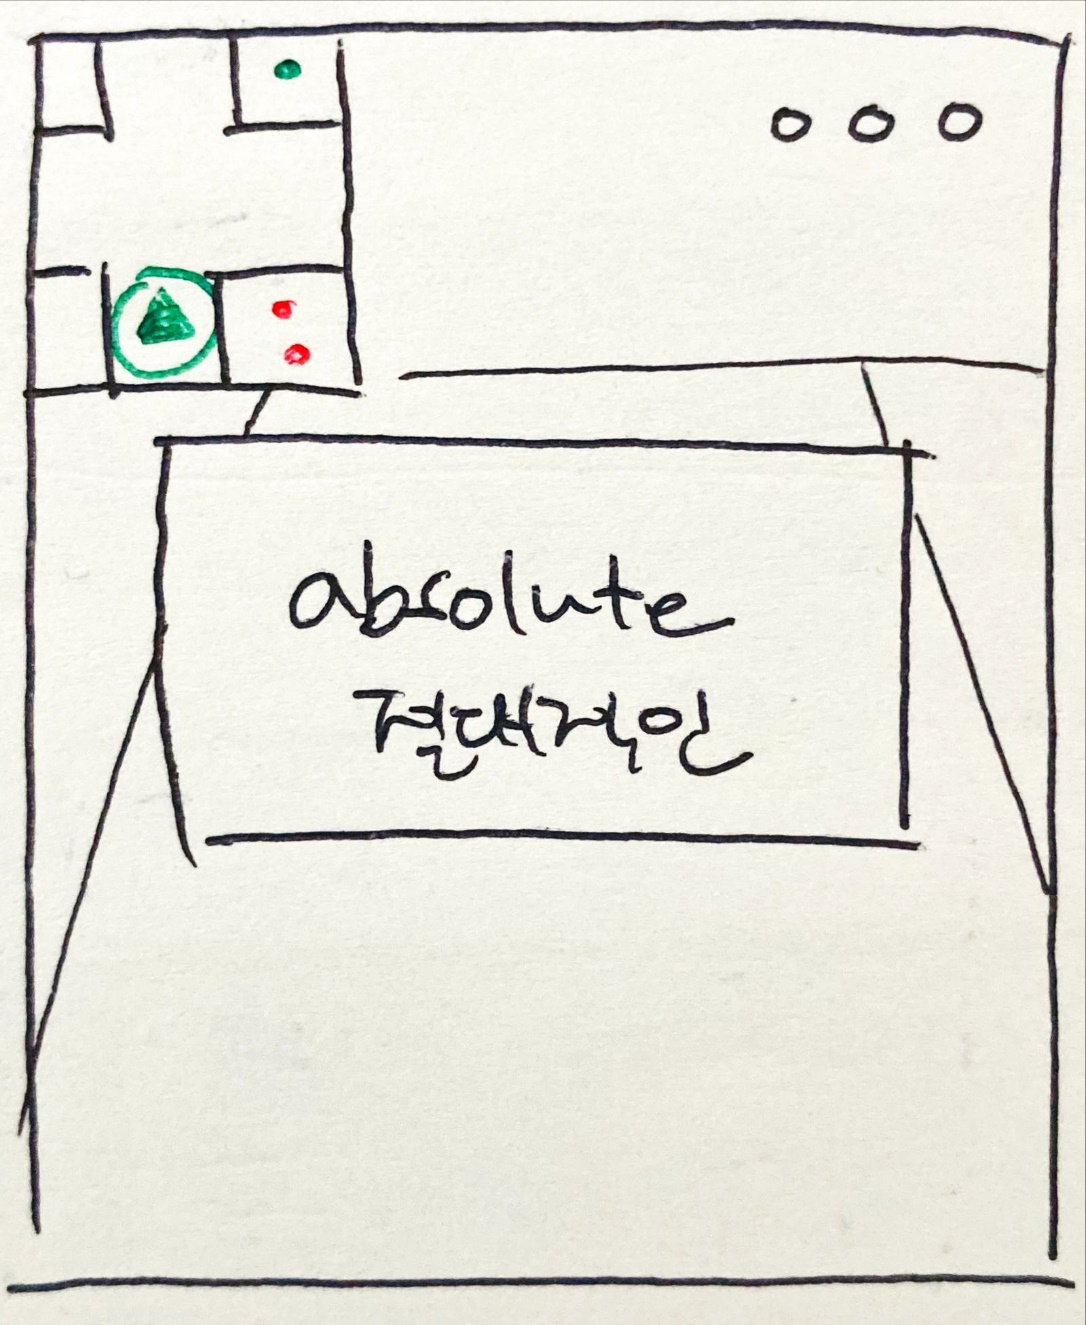 absolute
절대적인